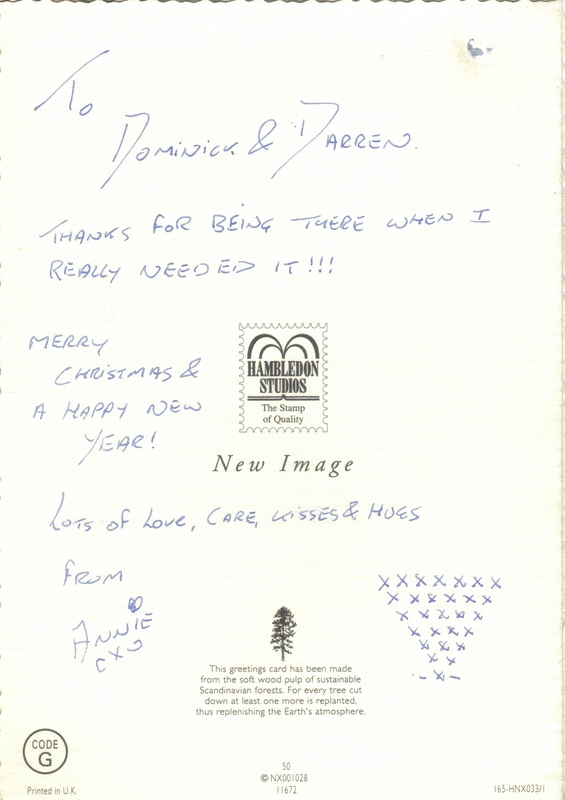 To
DOMINICK & DARREN.
THANKS FOR BEING THERE WHEN I
REALLY NEEDED IT!!!
MERRY
CHRISTMAS &
A HAPPY NEW
YEAR!
HAMBLEDON
STUDIOS
The Stamp
of Quality
New Image
LOTS OF LOVE, CARE, KISSES & HUGS
FROM
ANNIE
XXXXXXX
XXXXXX
XXXXX
XXXX
XXX
XX
-X-
This greetings card has been made
from the soft wood pulp of sustainable
Scandinavian forests. For every tree cut
down at least one more is replanted,
thus replenishing the Earth's atmosphere.
CODE
G
Printed in U.K.
50
© NX001028
11672
165-HNX033/1